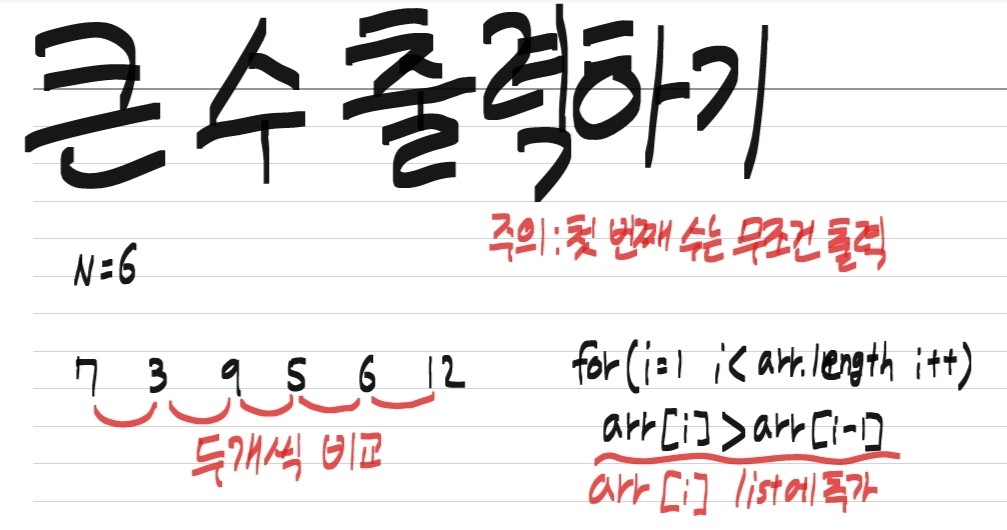 큰 수 출력하기
주의: 첫 번째 수는 무조건 출력
N=6
7 3 9 5 6 12
두개씩 비교
for(i=1 ; i< arr.length i++)
arr[i]>arr[i-1]
arr[i] list에 추가